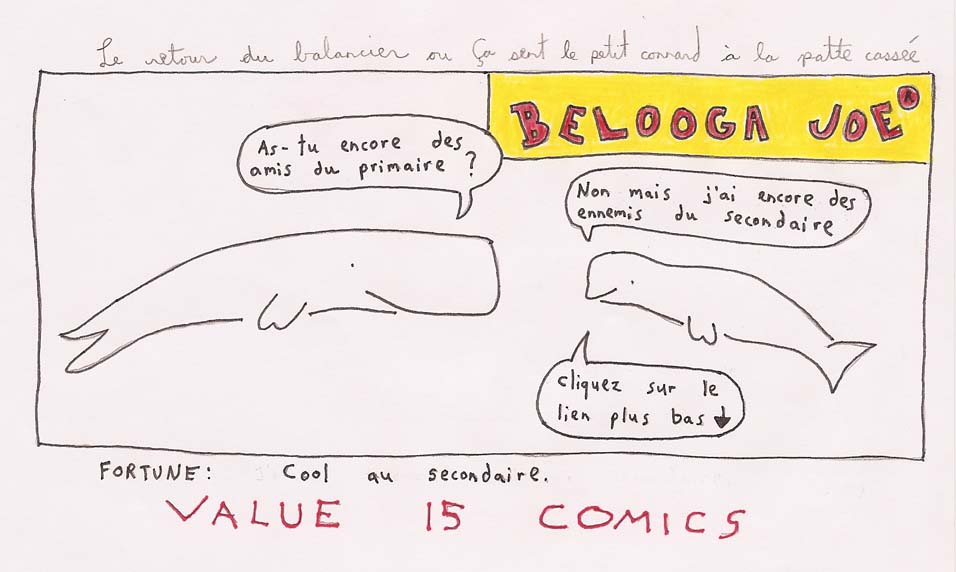 Le retour du balancier ou Ça sent le petit connard à la patte cassée
BELOOGA JOE
As-tu encore des
amis du primaire ?
Non mais j'ai encore des
ennemis du secondaire
cliquez sur le
lien plus bas
FORTUNE: Cool au secondaire.
VALUE 15 COMICS